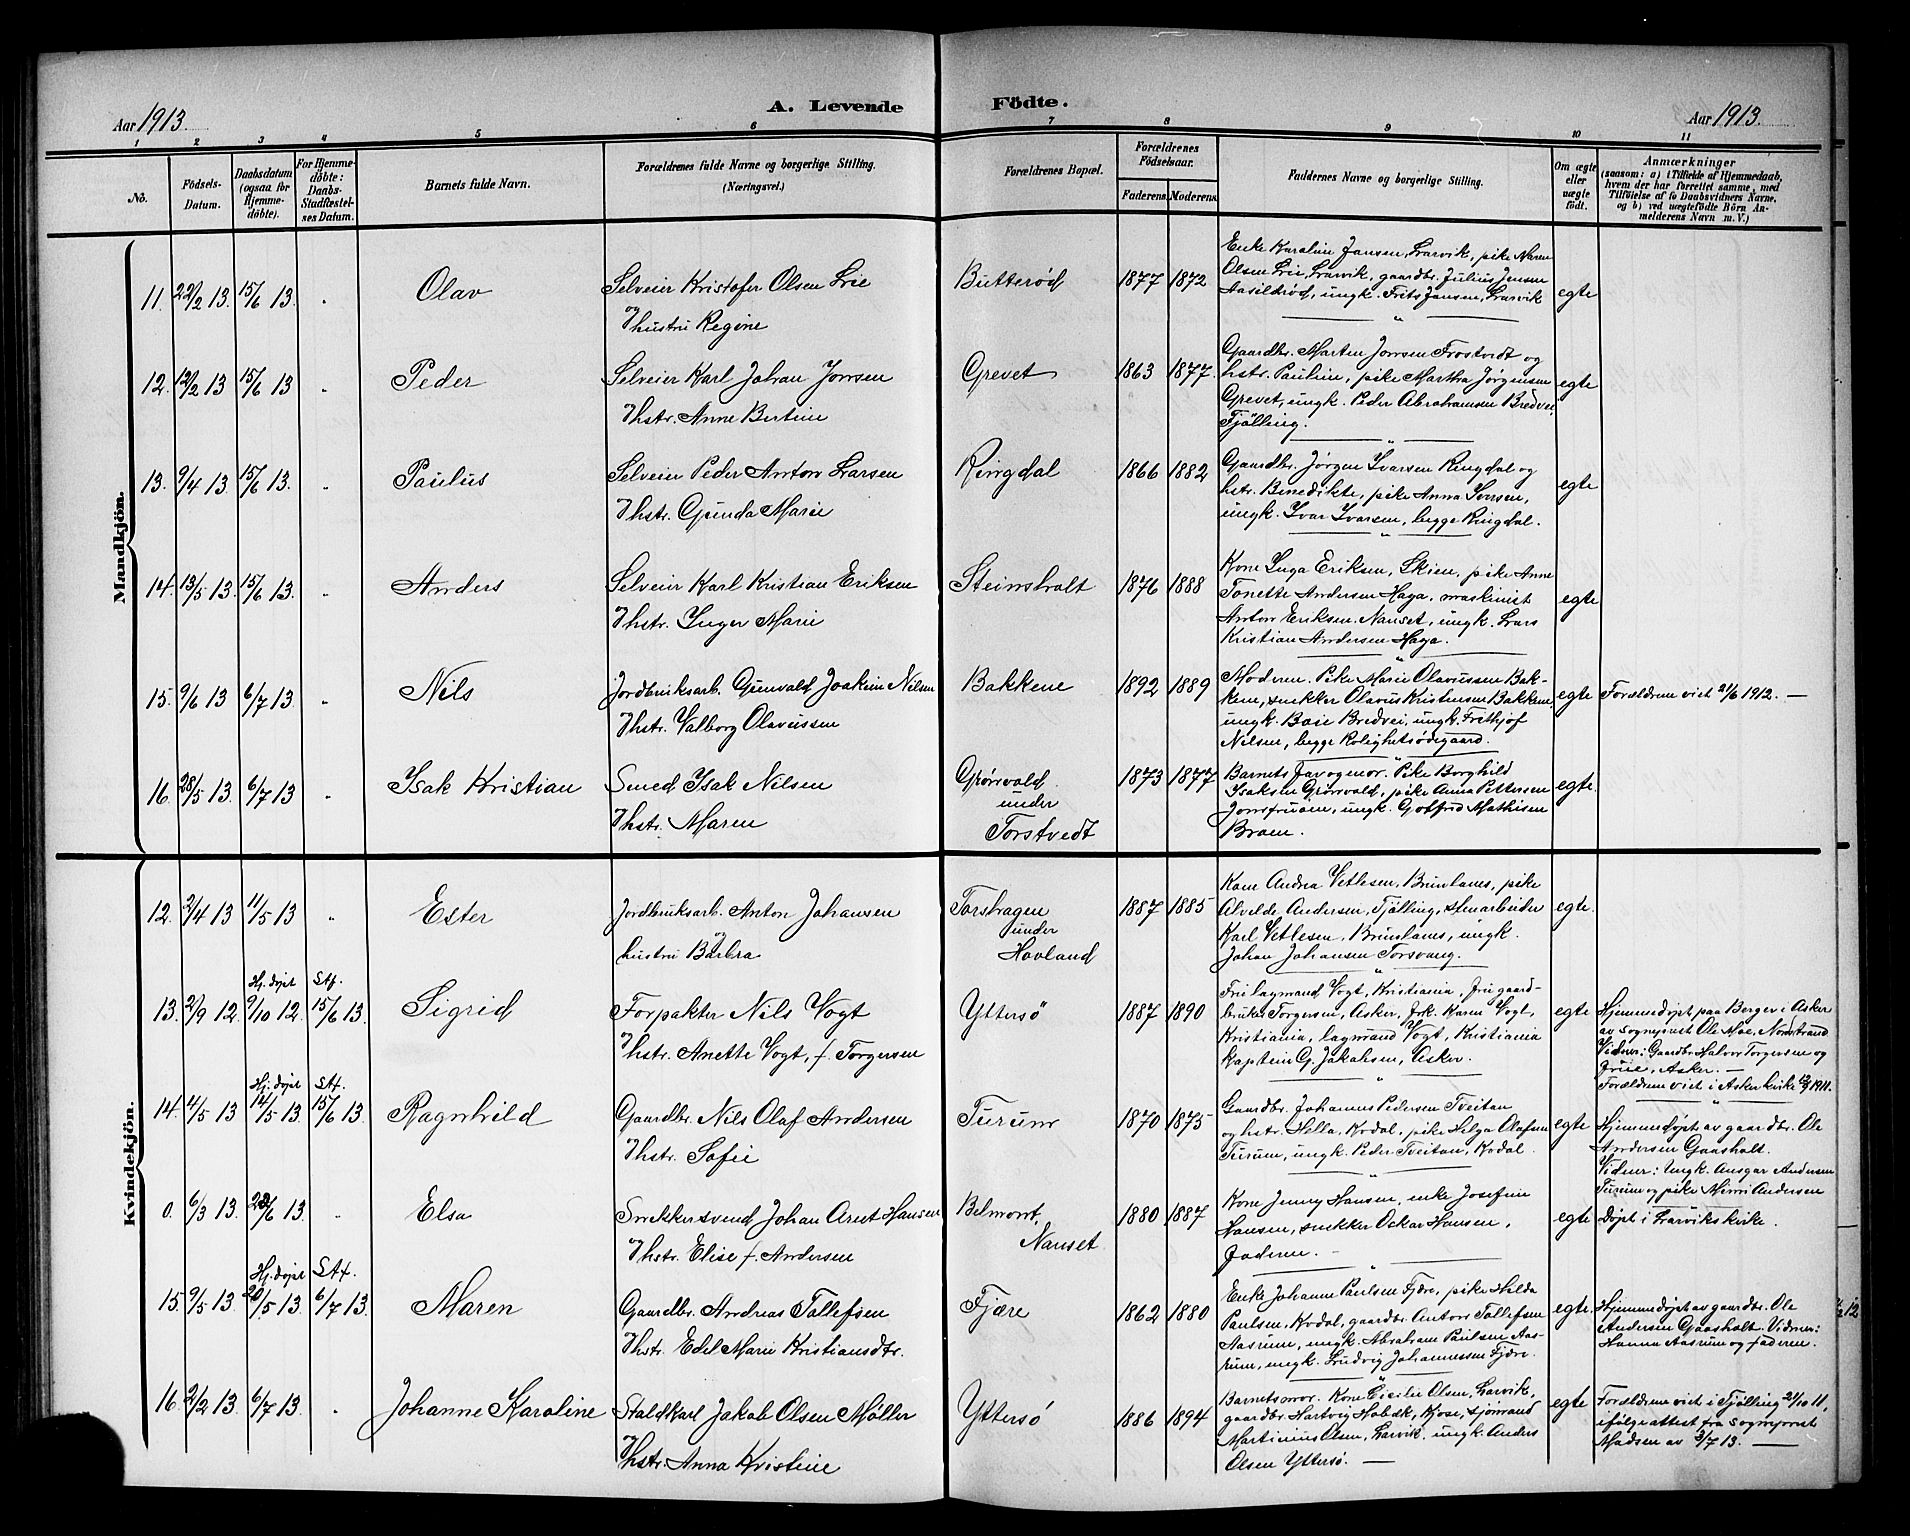 Aar 1913.
A. Levende Födte.
Aar 1913.
1 2 3 4 5 6 7 8 9 10 11
No.
Födsels-Datum.
Daabsdatum (ogsaa for Hjemme-döbte).
For Hjemme-döbte: Daabs-Stadfæstel-ses Datum.
Barnets fulde Navn.
Forældrenes fulde Navne og borgerlige Stilling.
(Næringsvei.)
Forældrenes Bopæl.
Forældrenes Födselsaar.
Faderens. Moderens.
Faddernes Navne og borgerlige Stilling.
Om ægte eller uægte födt.
Anmærkninger
(saasom: a) i Tilfælde af Hjemmedaab,
hvem der har forrettet samme, med
Tilföielse af to Daabsvidners Navne,
og b) ved uægtefödte Börn An-
melderens Navn m. V.)
Mandkjön.
11. 22/2 13. 15/6 13. " Olav
Selveier Kristofer Olsen Lie
og hustru Regine
Butterød 1877 1872
Enke Karoline Jansen, Larvik, pike Maren
Olsen Lie, Larvik, gaardbr. Julius Jensen
Aasildrød, ungk. Frits Jansen, Larvik
egte
12. 12/2 13 15/6 13 " Peder
Selveier Karl Johan Jonsen
og hstr. Anne Bertine
Grevet 1863 1877.
Gaardbr. Marten Jonsen Frostvedt og
hstr. Pauline, pike Martha Jørgensen
Grevet, ungk. Peder Abrahamsen Bredvei,
Fjølling.
egte
13. 9/4 13. 15/6 13. " Paulus
Selveier Peder Anton Larsen
og hstr. Gunda Marie
Ringdal 1866 1882
Gaardbr. Jørgen Ivarsen Ringdal og
hstr. Benedikte, pike Anna Ivarsen,
ungk. Ivar Ivarsen, begge Ringdal.
egte
14. 13/5 13. 15/6 13. " Anders
Selveier Karl Kristian Eriksen
og hstr. Inger Marie
Steinsholt 1876 1888
Kone Inga Eriksen, Skien, pike Anne
Tonette Andersen Haga, maskinist
Anton Eriksen, Nanset, ungk. Lars
Kristian Andersen Haga.
egte
15. 9/6 13 6/7 13. " Nils
Jordbruksarb. Gunvald Joakim Nilsen
og hstr. Valborg Olavussen
Bakkene 1892 1889
Moderen. Pike Marie Olavussen Bak-
kene, snekker Olavus Kristensen Bakkene,
ungk. Boie Bredvei, ungk. Frithjof
Nilsen, begge Rolighetsødegaard.
egte
Forældrene viet 21/6 1912. —
16. 28/5 13. 6/7 13 " Isak Kristian
Smed Isak Nilsen
og hstr. Maren
Grønvold under Torstvedt 1873 1877
Barnets far og mor. Pike Borghild
Isaksen Grønvold, pike Anna Pettersen
ungk. Gotfred Mathisen
egte.
Kvindekjön.
12. 2/4 13 11/5 13 " Ester
Jordbruksarb. Anton Johansen
og hustru Barbra
Torshagen under Hovland 1887 1885
Kone Andrea Vetlesen, Brunlanes, pike
Alvelde Andersen, Tjølling, stenarbeider
Karl Vetlesen, Brunlanes, ungk.
Johan Johansen Torsvang.
egte.
13. 2/9 12. Hj.døpt 9/10 12. Staf. 15/6 13. Sigrid
Forpakter Nils Vogt
og hstr. Anette Vogt, f. Torgersen
Yttersø 1887 1890
Fru lagmand Vogt, Kristiania, fru gaard-
bruker Torgersen, Asker, frk. Karen Vogt,
Kristiania, lagmand Vogt, Kristiania
kaptein G. Jakobsen, Asker.
egte
Hjemmedøpt paa Berger i Asker
av sogneprest Ole Moe, Nordstrand
Vidner: Gaardbr. Halvor Torgersen og
frue, Asker. —
Forældrene viet i Asker kirke 12/9 1911.
14. 4/5 13 Hj.døpt 14/5 13. Staf. 15/6 13. Ragnhild
Gaardbr. Nils Olaf Andersen
og hstr. Sofie
Furum 1870 1875
Gaardbr. Johannes Pedersen Tveitan
og hstr. Hella, Kodal, pike Helga Olafsen
Furum, ungk. Peder Tveitan, Kodal.
egte
Hjemmedøpt av gaardbr. Ole
Andersen Gaasholt.
Vidner: Ungk. Ansgar Andersen
Furum og pike Minni Andersen
0. 6/3 13. 22/6 13. " Elsa
Snekkersvend Johan Arnt Hansen
og hstr. Elise f. Andersen
Belmont, Nanset 1880 1887
Kone Jenny Hansen, enke Josefine
Hansen, snekker Oskar Hansen,
faderen. —
egte
døpt i Larviks kirke.
15. 9/5 13. Hj.døpt 20/5 13. Staf. 6/7 13. Maren
Gaardbr. Andreas Tollefsen
og hstr. Edel Marie Kristiansdtr.
Fjære 1862 1880
Enke Johanne Paulsen Fjære, pike Hilda
Paulsen, Kodal, gaardbr. Anton Tollefsen
Aasrum, ungk. Abraham Paulsen Aas-
rum, ungk. Ludvig Johannessen Fjære.
egte.
Hjemmedøpt av gaardbr. Ole
Andersen Gaasholt. Vidner:
Hanna Aasrum og faderen.
16. 2/2 13. 6/7 13. " Johanne Karoline
Staldkarl Jakob Olsen Møller
og hstr. Anna Kristine
Yttersø 1886 1894
Barnets mor. Kone Cecilie Olsen, Larvik,
gaardbr. Hartvig Holbæk, Kjose, sjømand
Martinius Olsen, Larvik, ungk. Anders
Olsen Yttersø. —
egte
Forældrene viet i Tjølling 21/10 11,
ifølge attest fra sogneprest
Madsen av 3/7 13. —